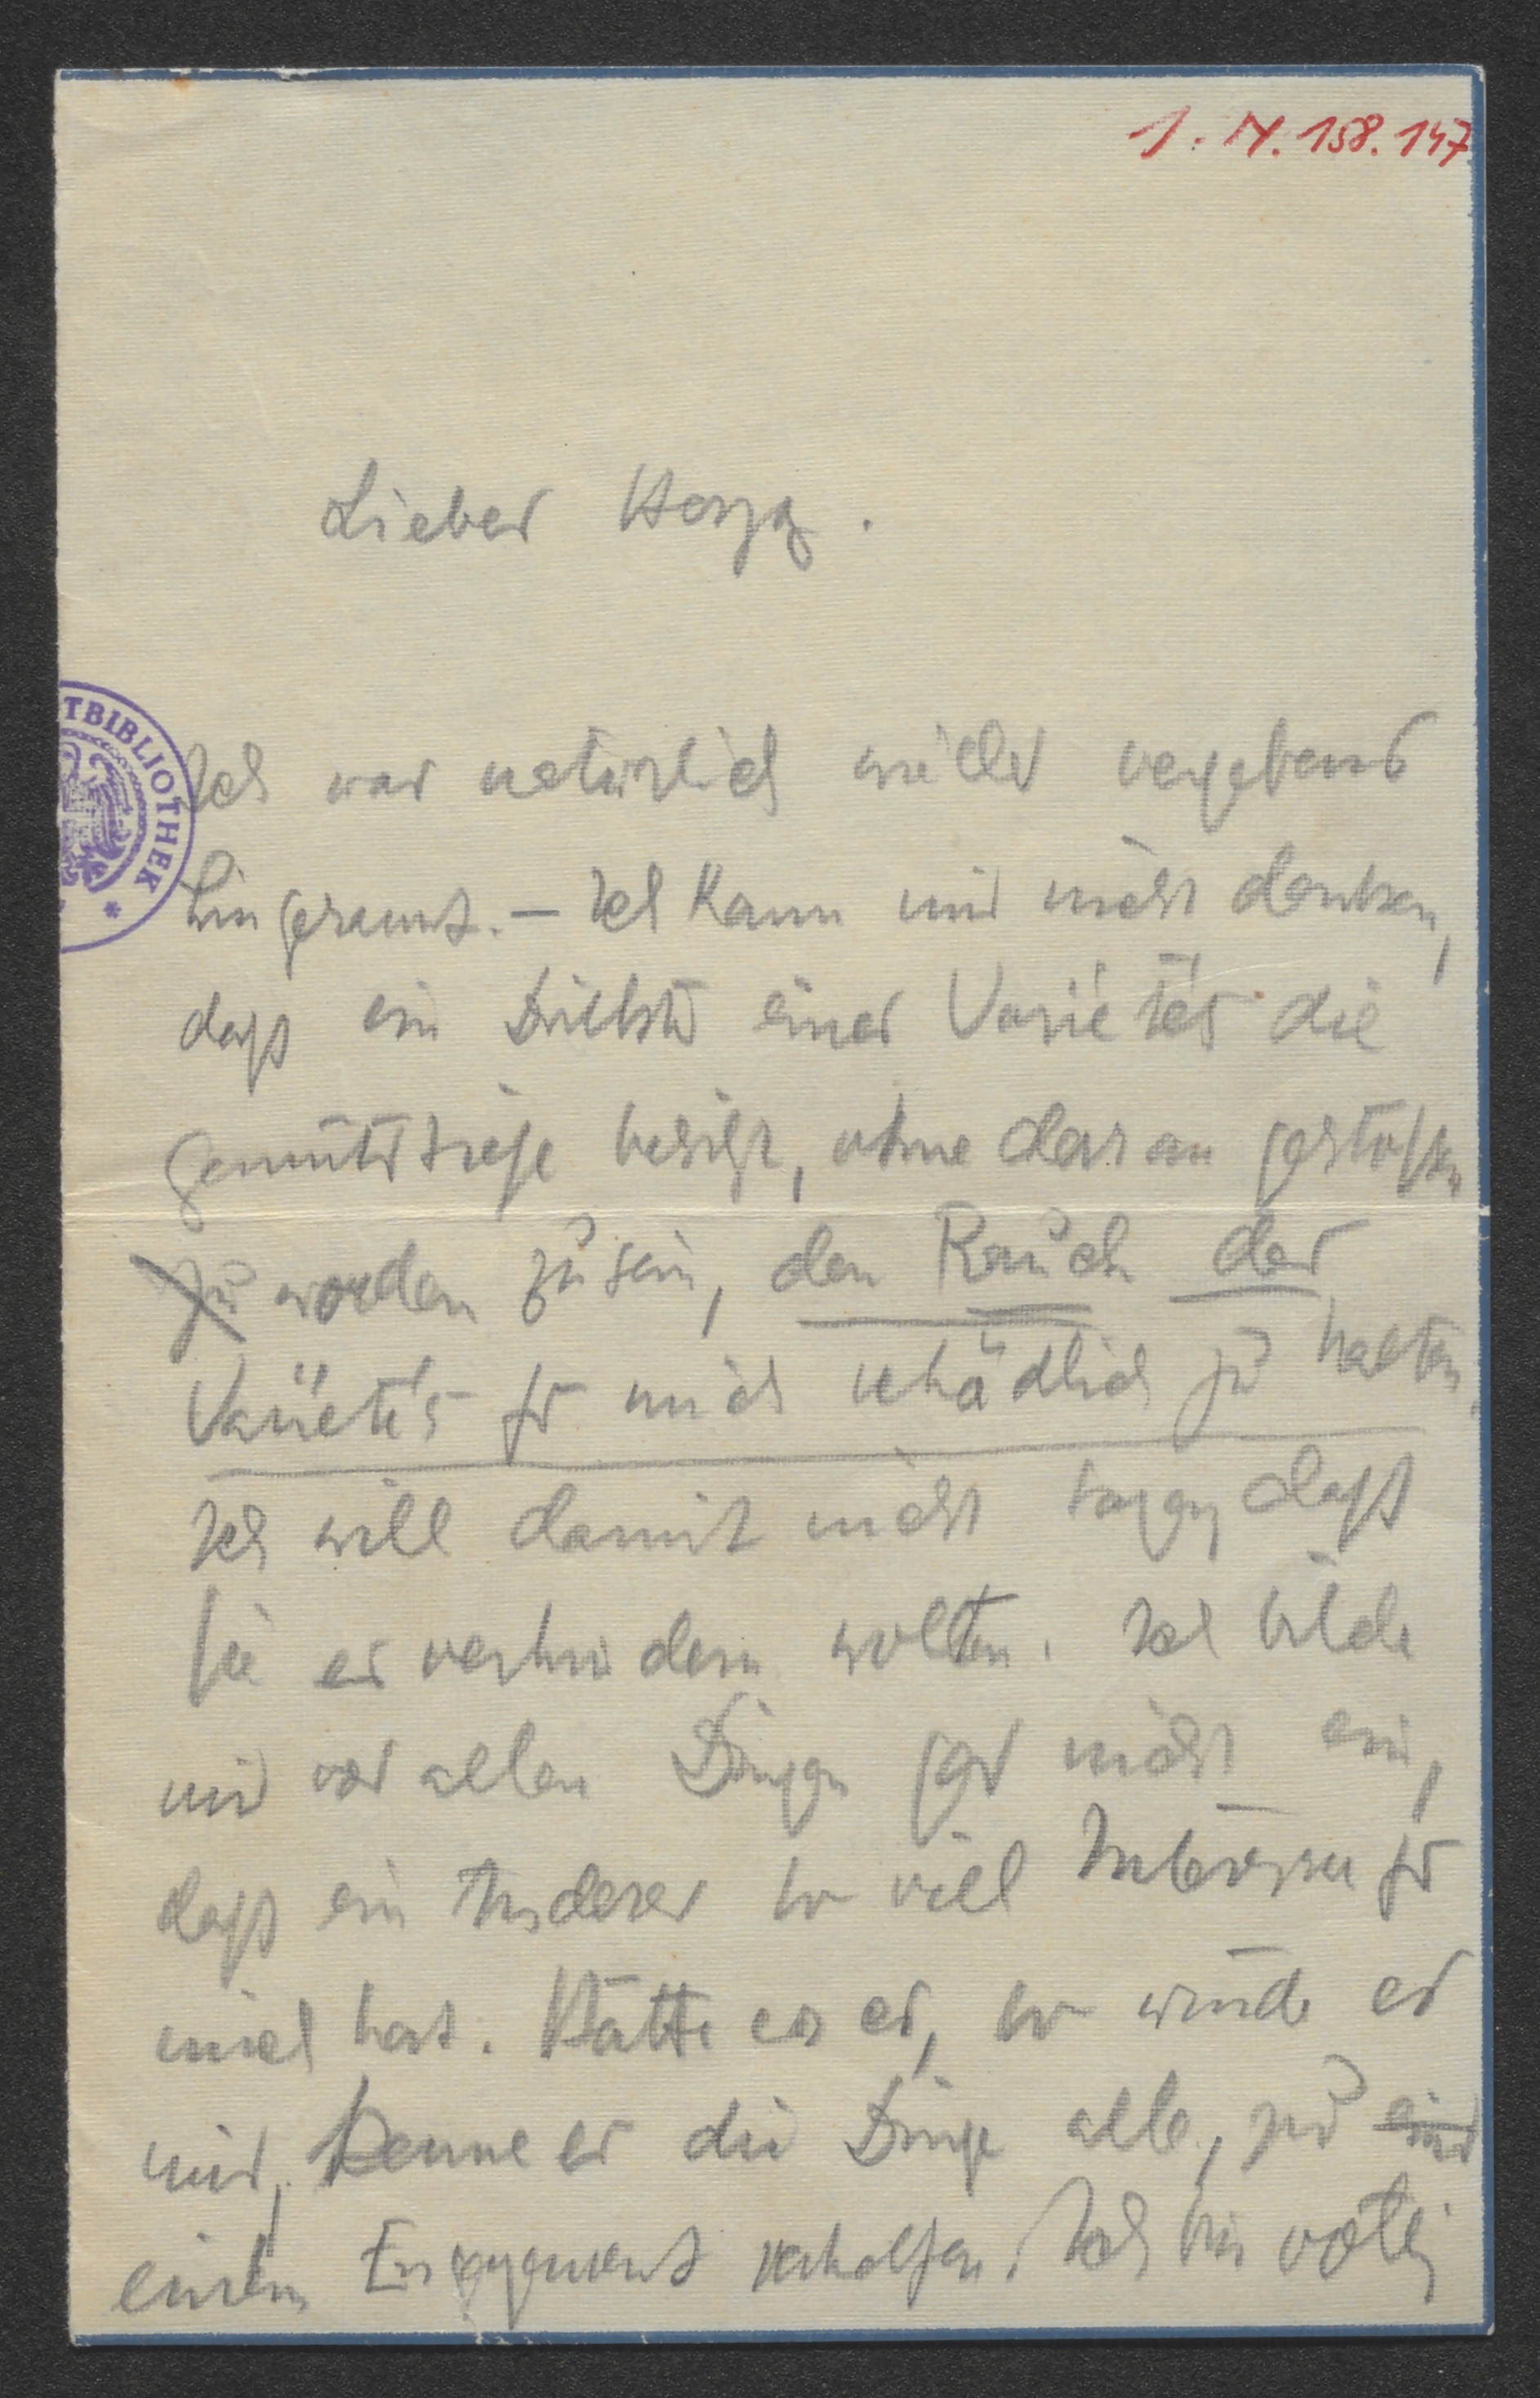 1. N. 158.147
Lieber Herzog.
TBIBLIOTHEK
Ich war natürlich wieder vergebens
hingerannt. – Ich kann mir nicht denken,
daß ein einer Varietés die
Gemütstiefe besitzt, ohne daran gestoßen
zu worden zu sein, den Rauch der
Varietés für mich schädlich zu halten.
Ich will damit nicht sagen, daß
Sie es verhindern wollten. Ich bilde
mir vor allen Dingen gar nicht ein,
daß ein Anderer so viel Interesse für
mich hat. Hätte er es, so würde er
mir, kenne er die Dinge alle, zu einer
einem Engagement verholfen. Ich bin völlig